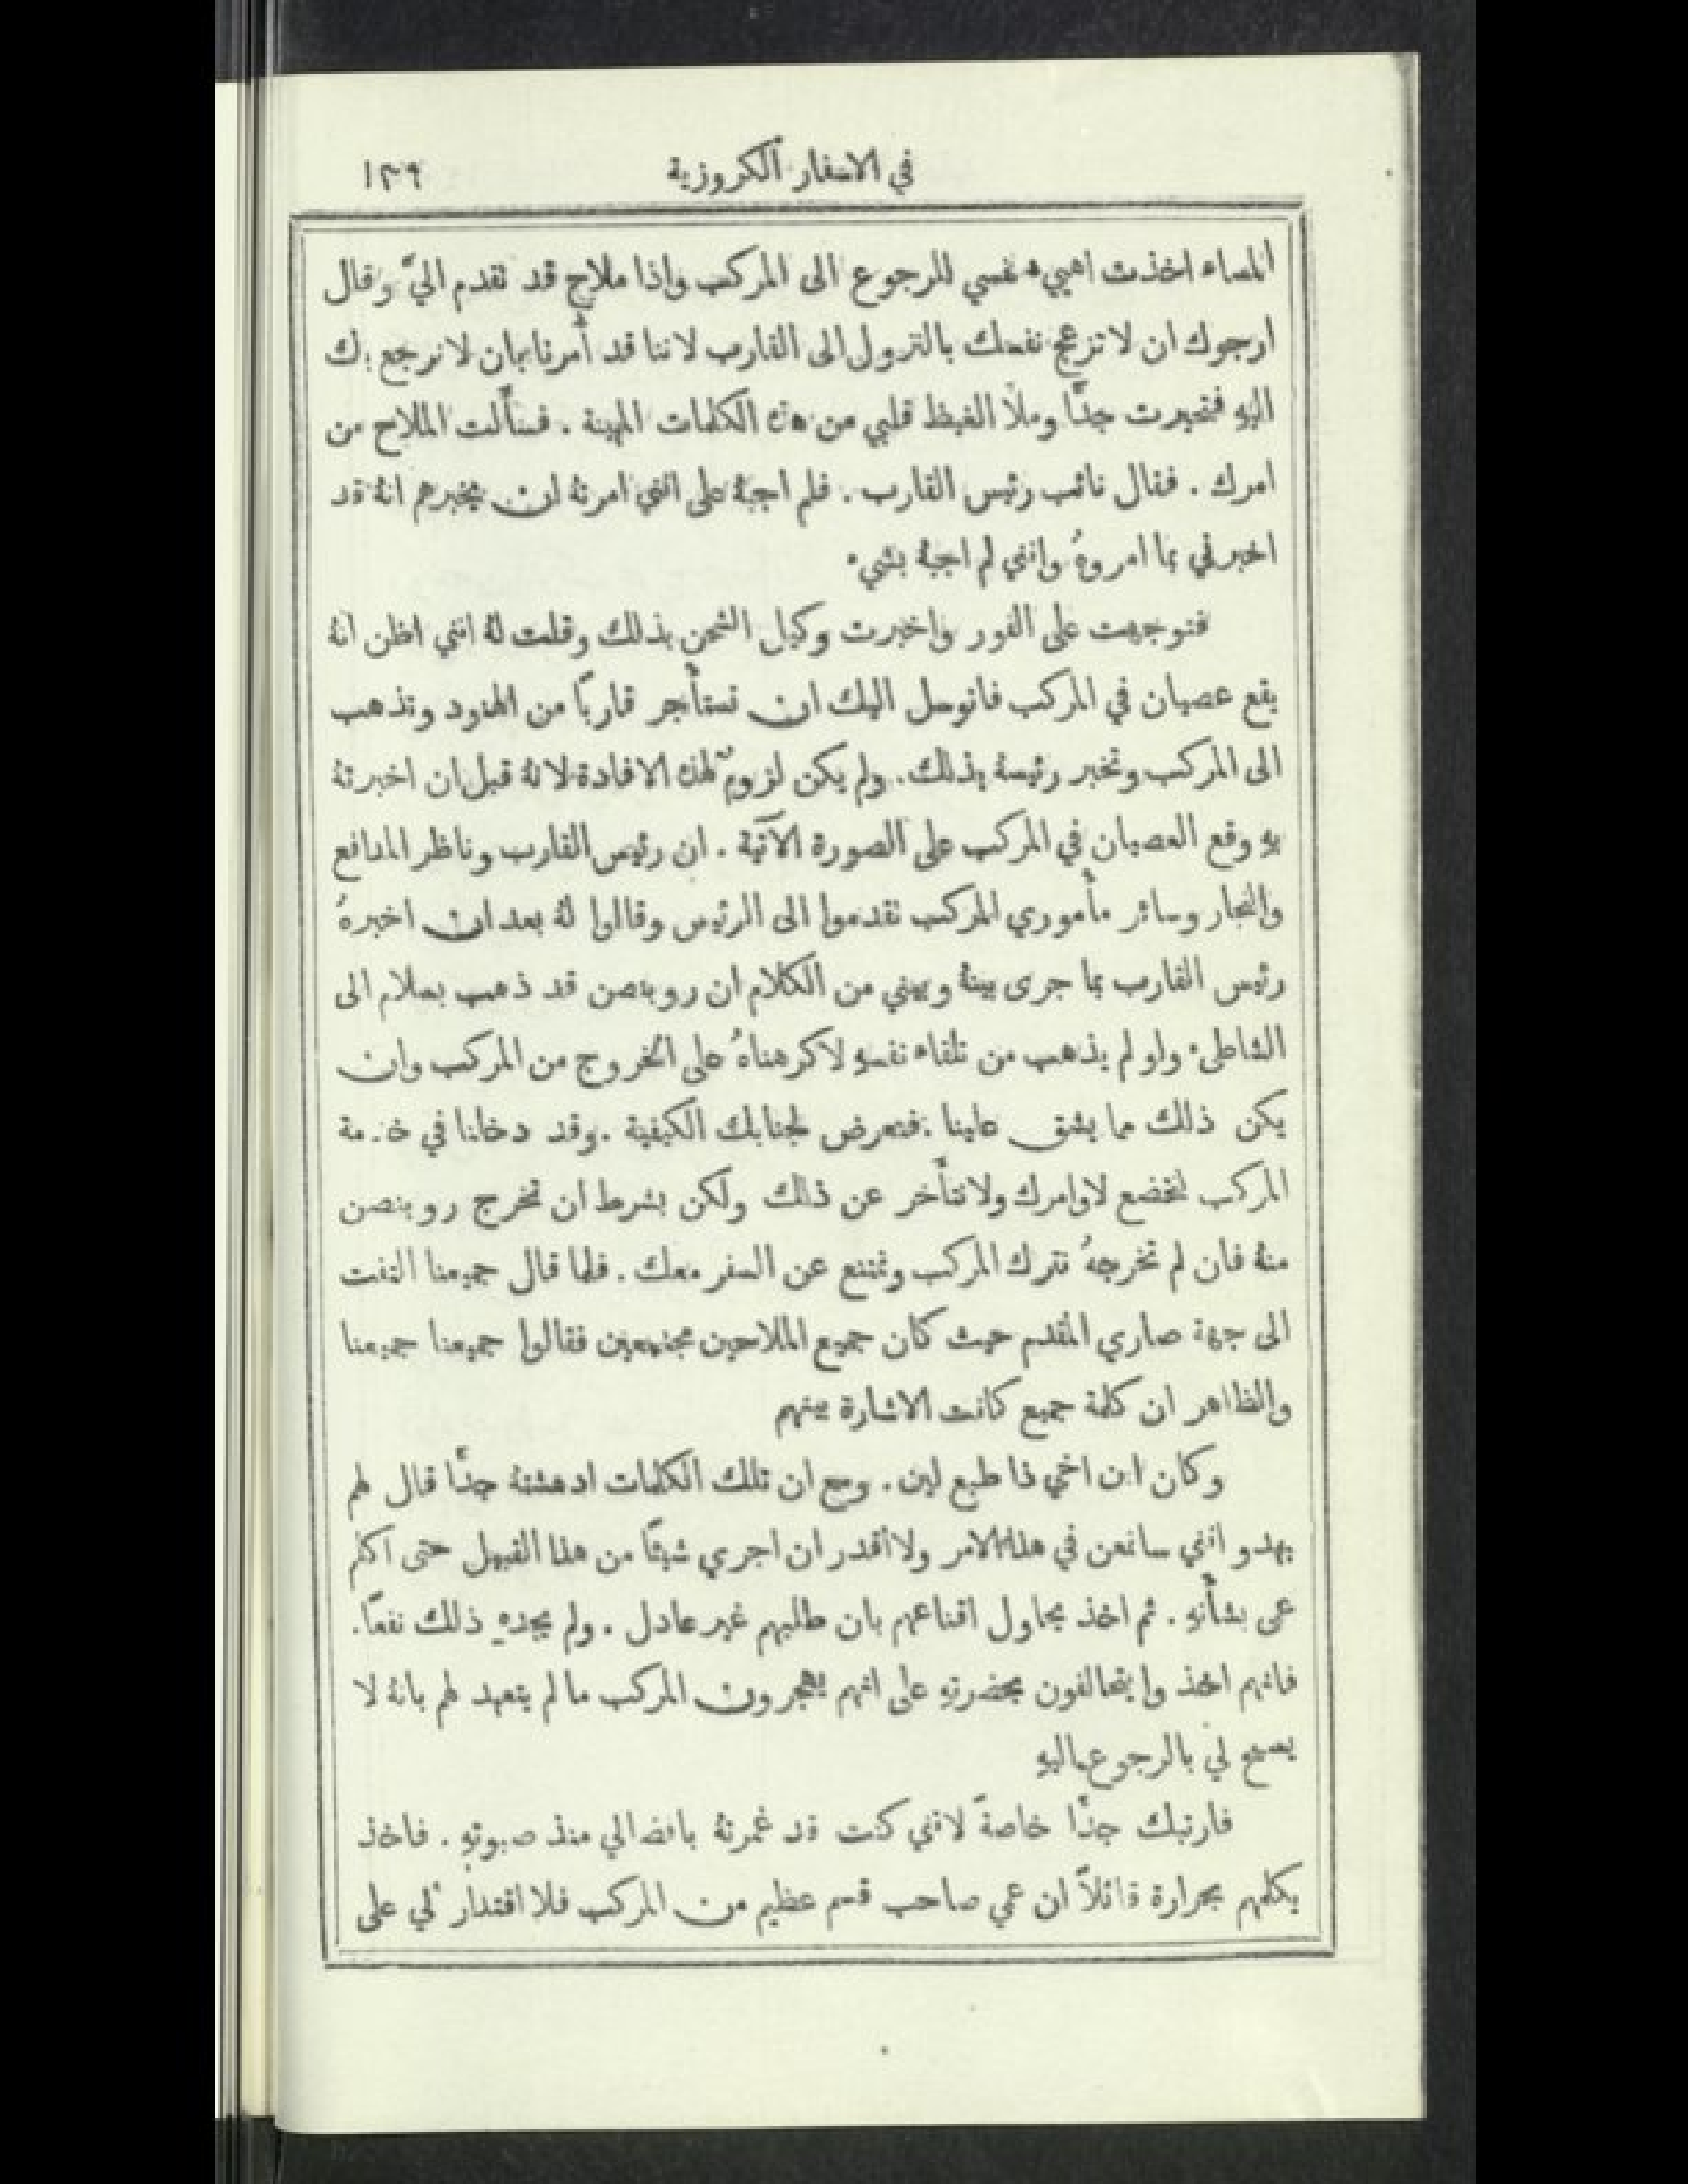 في الاسفار الكروزية ١٣٩
المساء اخذت اهيىء نفسي للرجوع الى المركب واذا ملاح قد تقدم اليَّ وقال
ارجوك ان لا تزعج نفسك بالنزول الى القارب لاننا قد أُمرنا بان لا نرجع بك
اليهِ فتحيرت جدًّا وملأ الغيظ قلبي من هذه الكلمات المهينة . فسأَلت الملاح من
امرك . فقال نائب رئيس القارب . فلم اجبهُ على انني امرتهُ ان يخبرهم انهُ قد
اخبرني بما امروهُ وانني لم اجبهُ بشيء
فتوجهت على الفور واخبرت وكيل الشحن بذلك وقلت لهُ انني اظن انهُ
يقع عصيان في المركب فاتوسل اليك ان تستأْجر قاربًا من الهنود وتذهب
الى المركب وتخبر رئيسهُ بذلك. ولم يكن لزومٌ لهذه الافادة لانهُ قبل ان اخبرتهُ
بهِ وقع العصيان في المركب على الصورة الآتية . ان رئيس القارب وناظر المدافع
والنجار وسائر مأْموري المركب تقدموا الى الرئيس وقالوا لهُ بعد ان اخبرهُ
رئيس القارب بما جرى بينهُ وبيني من الكلام ان روبنصن قد ذهب بسلام الى
الشاطىء ولو لم يذهب من تلقاء نفسهِ لاكرهناهُ على الخروج من المركب وان
يكن ذلك مما يشق علينا .فنعرض لجنابك الكيفية .وقد دخلنا في خدمة
المركب لنخضع لاوامرك ولا نتأَخر عن ذلك ولكن بشرط ان تخرج روبنصن
منهُ فان لم تخرجهُ نترك المركب ونمتنع عن السفر معك . فلما قال جميعنا التفت
الى جهة صاري المقدم حيث كان جميع الملاحين مجتمعين فقالوا جميعنا جميعنا
والظاهر ان كلمة جميع كانت الاشارة بينهم
وكان ابن اخي ذا طبع لين . ومع ان تلك الكلمات ادهشتهُ جدًّا قال لهم
بهدو انني سانمعن في هذا الامر ولا أقدر ان اجري شيئًا من هذا القبيل حتى اكلم
عمي بشأْنهِ . ثم اخذ يحاول اقناعهم بان طلبهم غير عادل . ولم يجدهِ ذلك نفعًا.
فانهم اخذ وا يتحالفون بحضرتهِ على انهم يهجرون المركب ما لم يتعهد لهم بانهُ لا
يسمح لي بالرجوع اليهِ
فارتبك جدًّا خاصةً لانني كنت قد غمرتهُ بافضالي منذ صبوتهِ . فاخذ
يكلمهم بحرارة قائلاً ان عمي صاحب قسم عظيم من المركب فلا اقتدار لي على